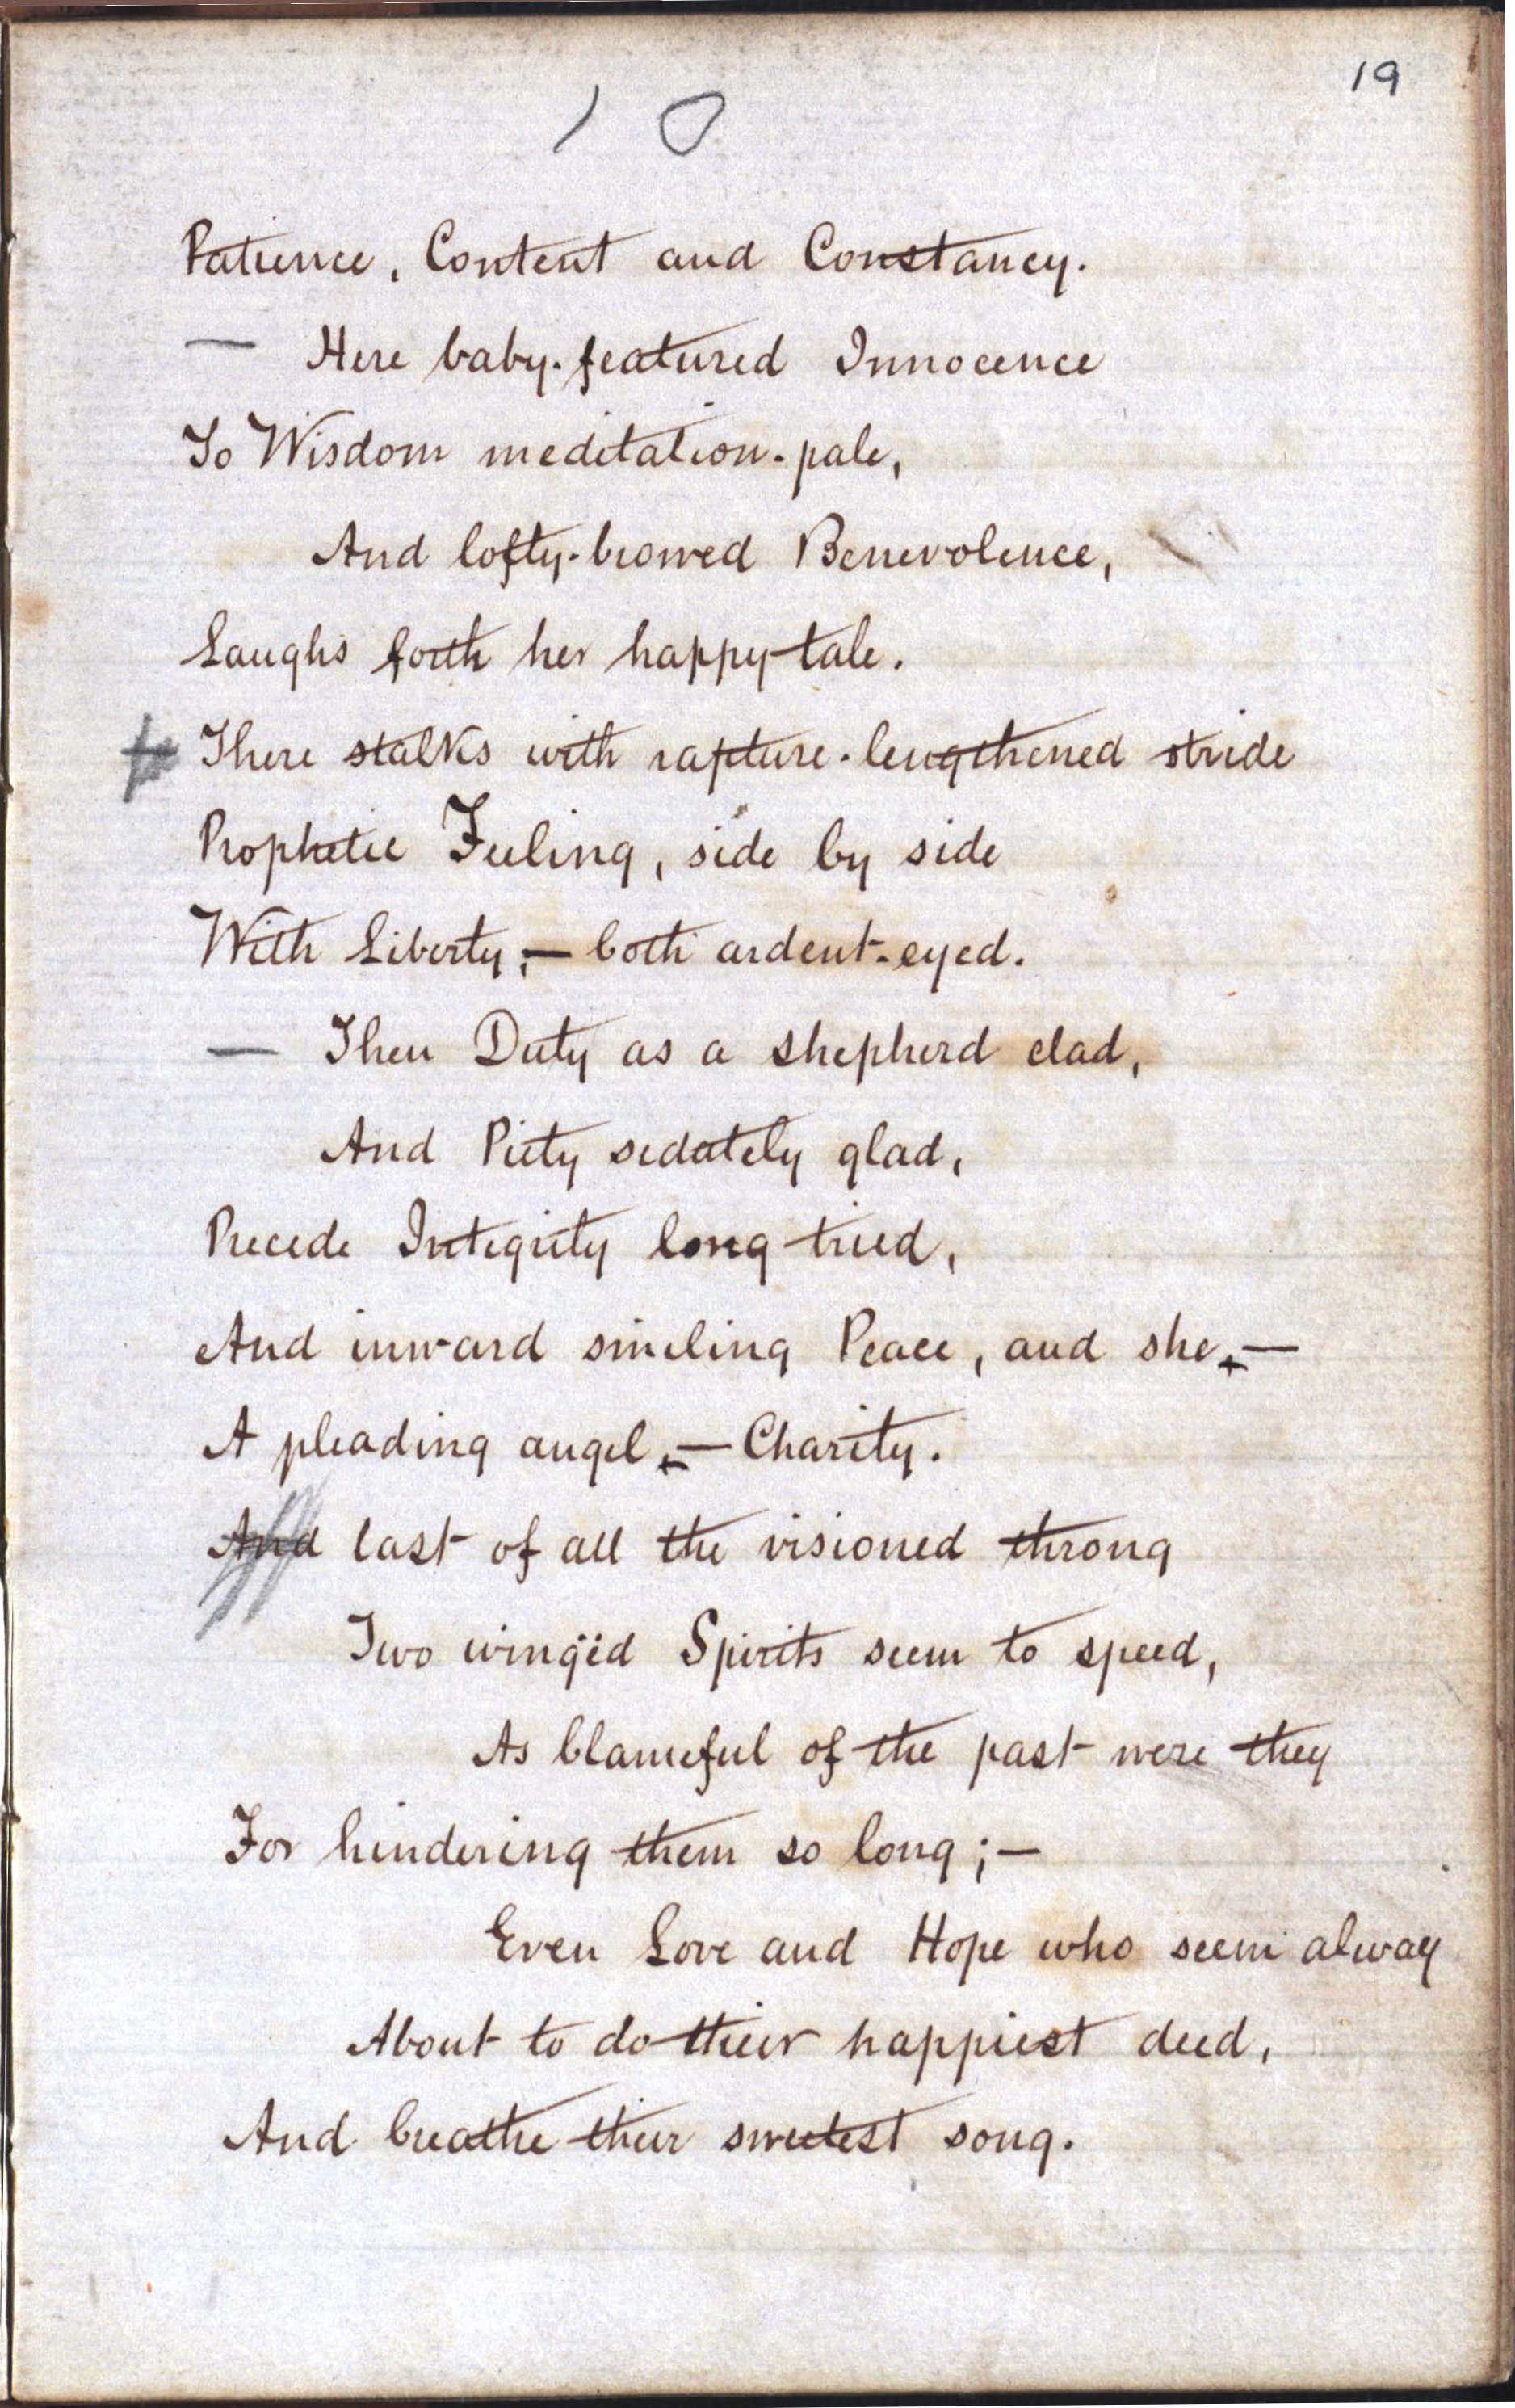 19
10
Patience, Content and Constancy.
— Here baby-featured Innocence
To Wisdom meditation-pale,
And lofty-browed Benevolence,
Laughs forth her happy tale.
There stalks with rapture-lengthened stride
Prophetic Feeling, side by side
With Liberty;— both ardent-eyed.
— Then Duty as a shepherd clad,
And Piety sedately glad,
Precede Integrity long tried,
And inward smiling Peace, and she,—
A pleading angel,— Charity.
And last of all the visioned throng
Two wingëd Spirits seem to speed,
As blameful of the past were they
For hindering them so long;—
Even Love and Hope who seem alway
About to do their happiest deed,
And breathe their sweetest song.